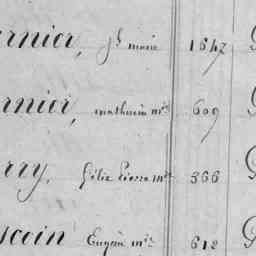 ernier, Jh marie 1847
ernier, mathurin mie 609
erry, Félix Pierre mie 366
scoin Eugène mie 612